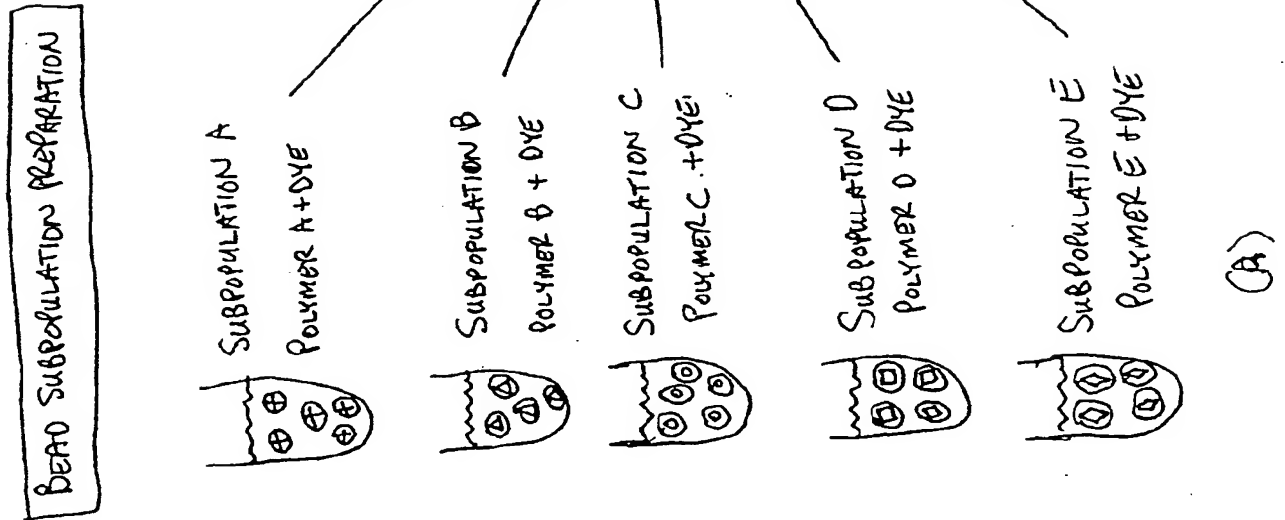 BEAD SUBPOPULATION PREPARATION
SUBPOPULATION A
POLYMER A+DYE
SUBPOPULATION B
POLYMER B + DYE
SUBPOPULATION C
POLYMER C.+DYE
SUBPOPULATION D
POLYMER D +DYE
SUBPOPULATION E
POLYMER E +DYE